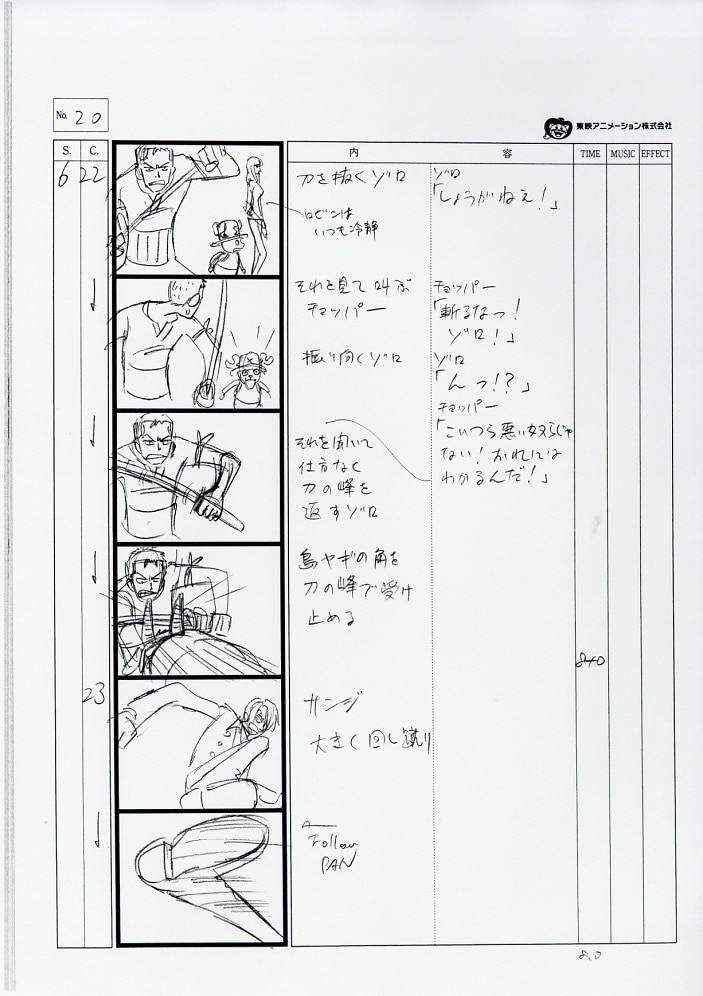 No. 20
東映アニメーション株式会社
S. C. 内 容 TIME MUSIC EFFECT
6 22
刀を抜くゾロ
ロビンは
いつも冷静
ゾロ
「しょうがねえ！」
それを見て叫ぶ
チョッパー
チョッパー
「斬るなっ！
ゾロ！」
振り向くゾロ
ゾロ
「んっ！？」
チョッパー
「こいつら悪い奴らじゃ
ない！おれには
わかるんだ！」
それを聞いて
仕方なく
刀の峰を
返すゾロ
島ヤギの角を
刀の峰で受け
止める
8+0
23
サンジ
大きく回し蹴り
Follow
PAN
8.0